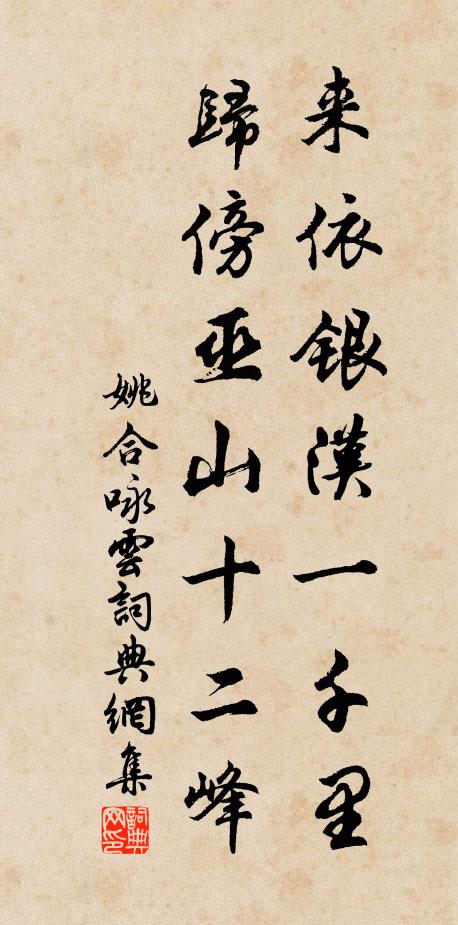 来依銀漢一千里
歸傍巫山十二峰
姚合咏雲詞典網集
詞典网印